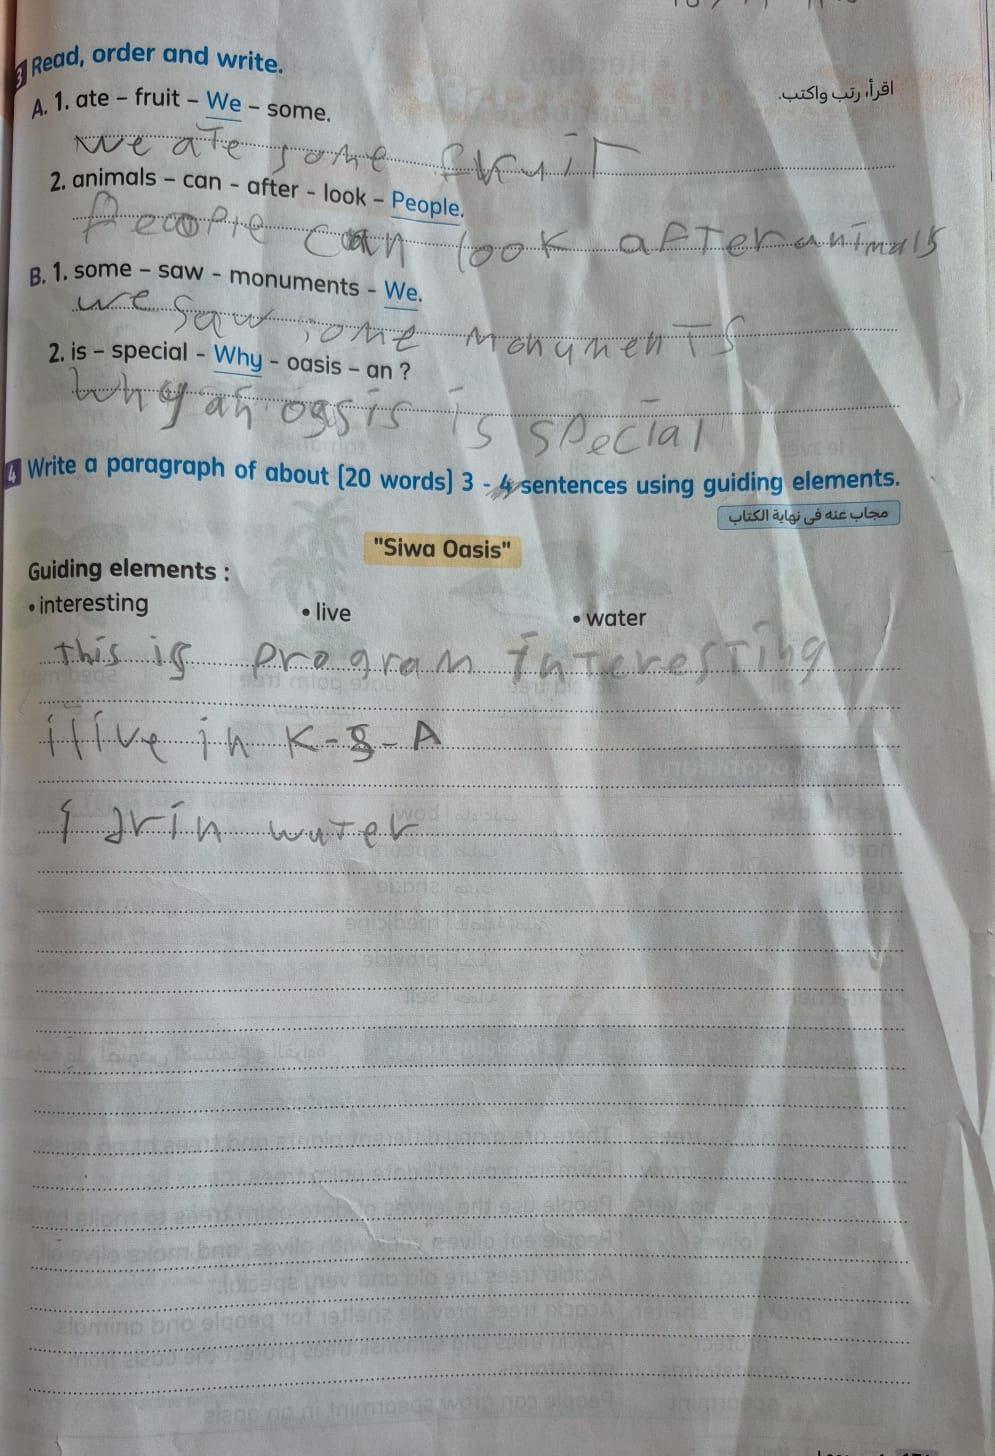 3 Read, order and write.
اقرأ، رتب واكتب.
A. 1. ate – fruit – We – some.
we ate some fruit
2. animals – can - after - look – People.
People can look after animals
B. 1. some – saw - monuments - We.
we saw some monuments
2. is – special - Why - oasis – an ?
Why an oasis is special
4 Write a paragraph of about (20 words) 3 - 4 sentences using guiding elements.
مجاب عنه فى نهاية الكتاب
"Siwa Oasis"
Guiding elements :
• interesting • live • water
this is program interesting
i live in K-S-A
I drin water